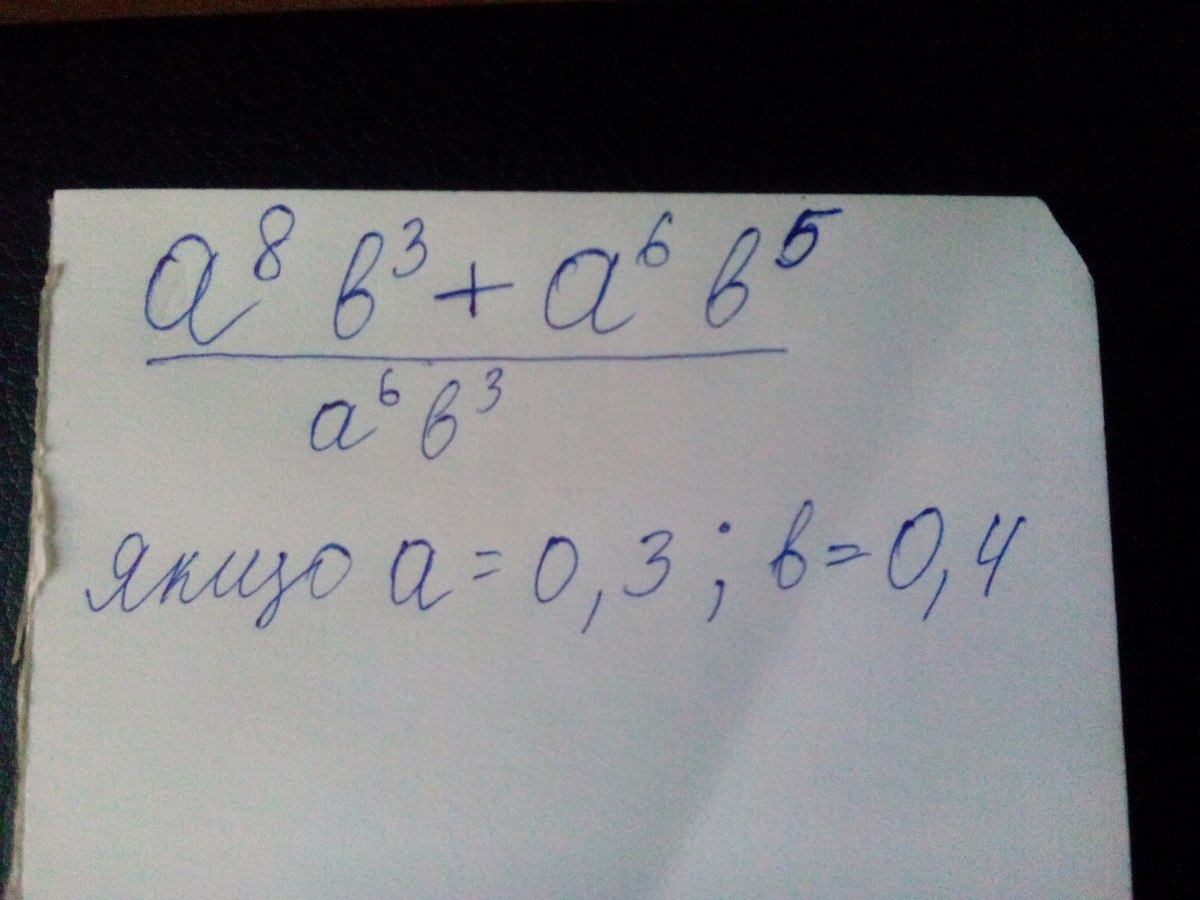 a⁸ в³ + a⁶ в⁵
a⁶ в³
якщо a = 0,3; в = 0,4